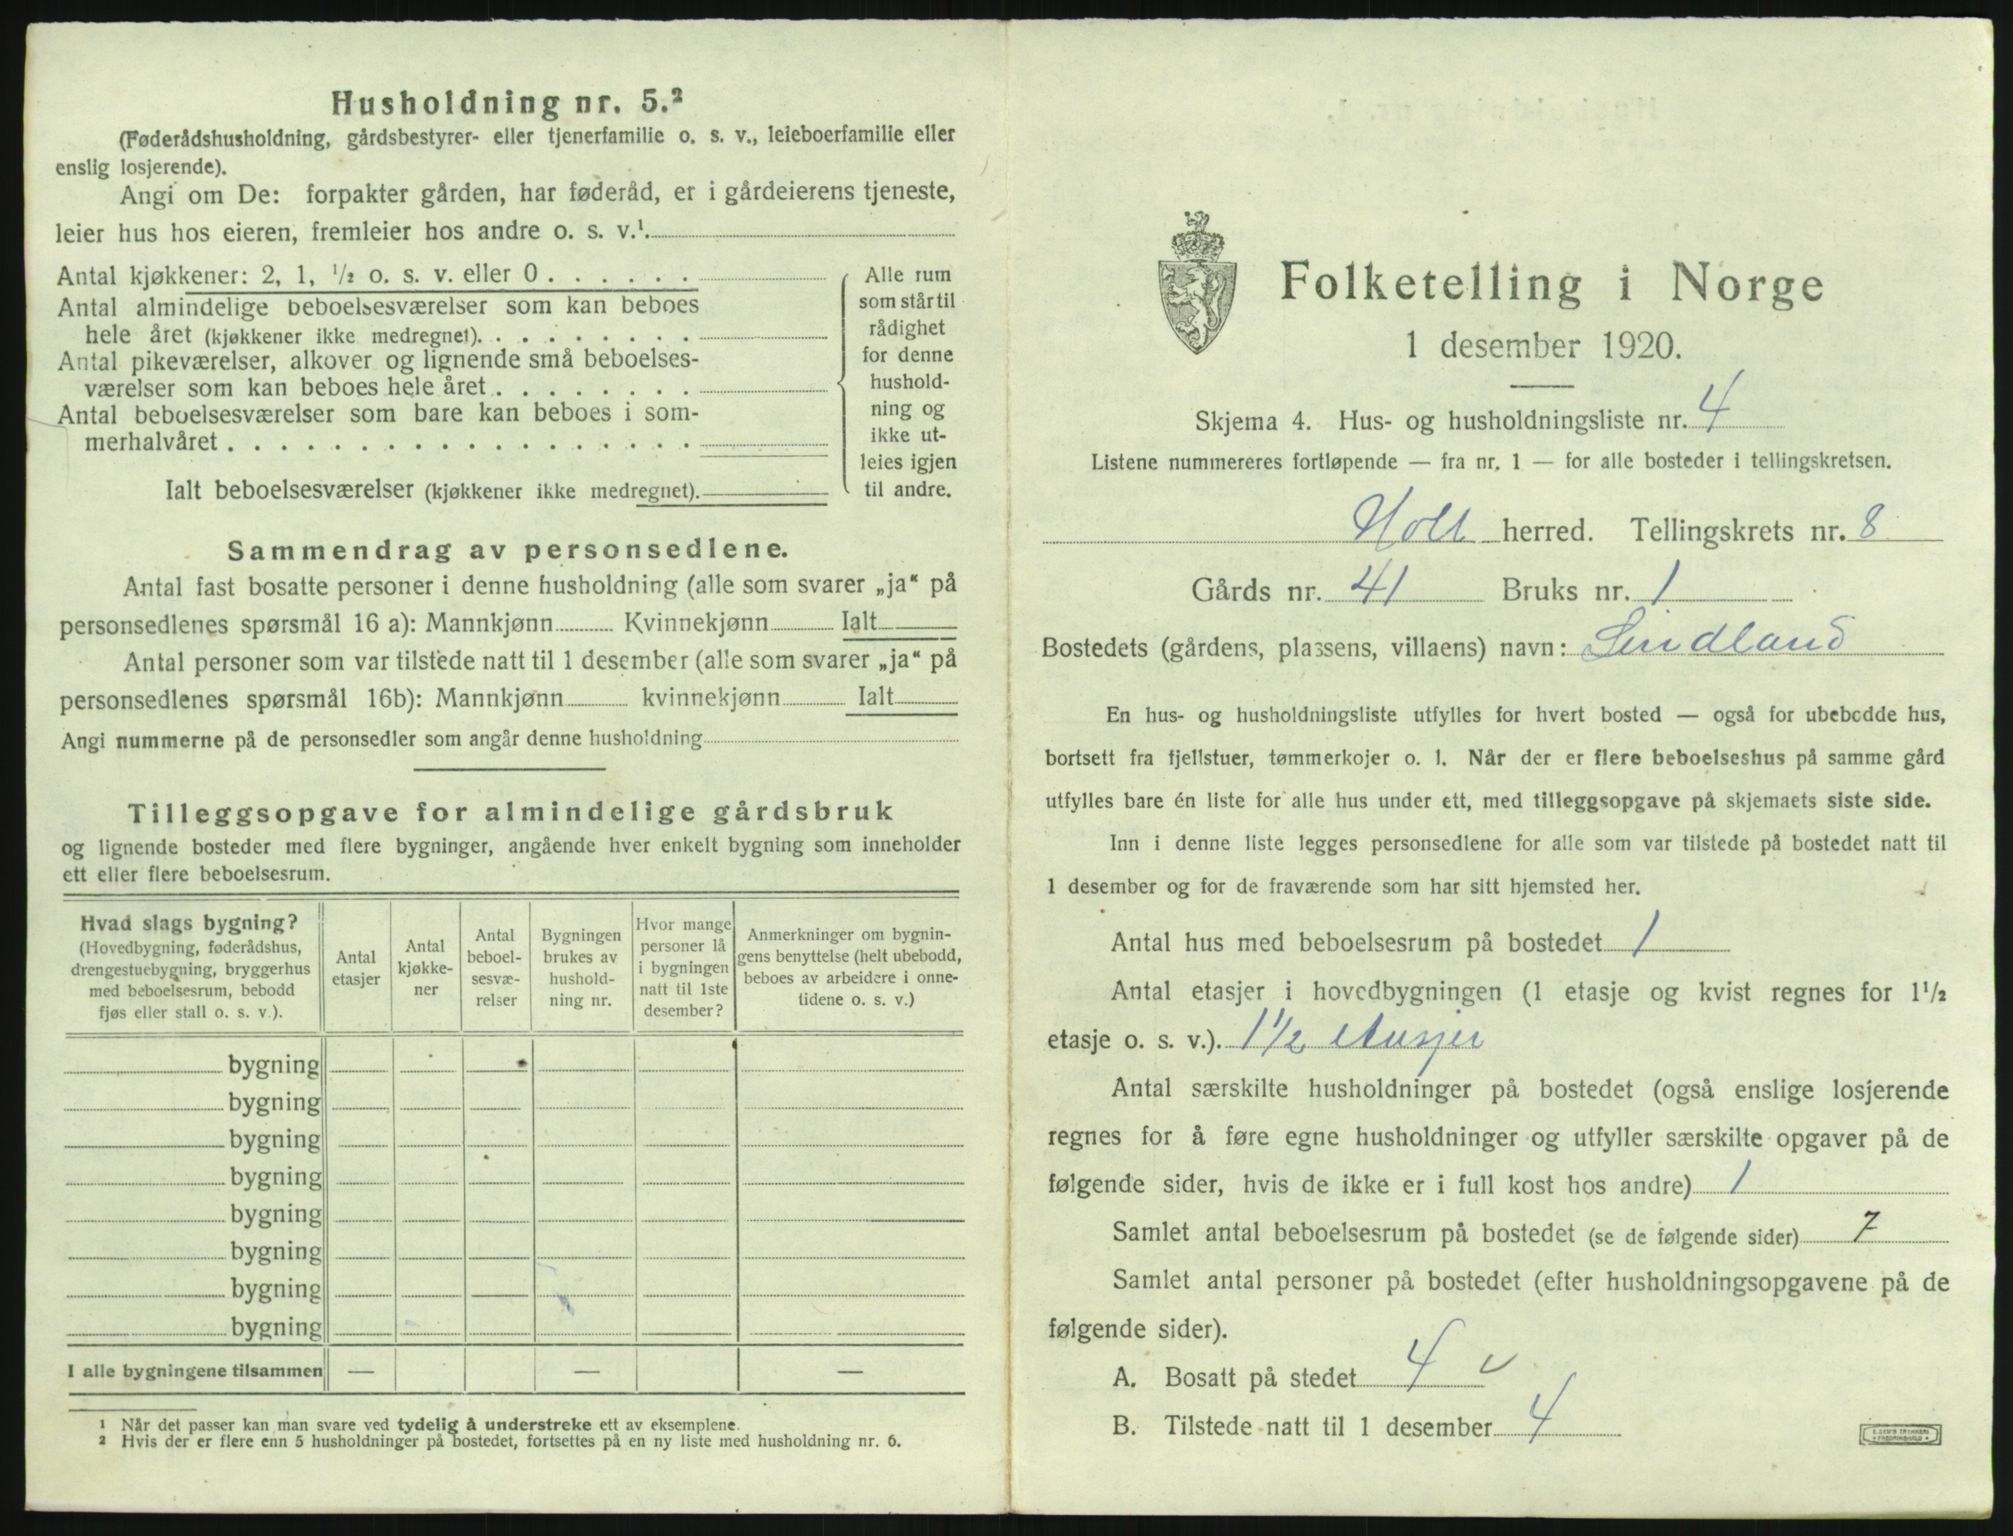 Husholdning nr. 5.²
(Føderådshusholdning, gårdsbestyrer- eller tjenerfamilie o. s. v., leieboerfamilie eller
enslig losjerende).
Angi om De: forpakter gården, har føderåd, er i gårdeierens tjeneste,
leier hus hos eieren, fremleier hos andre o. s. v.¹.
Antal kjøkkener: 2, 1, ½ o. s. v. eller 0 . . . . . .
Antal almindelige beboelsesværelser som kan beboes
hele året (kjøkkener ikke medregnet). . . . . . . . .
Antal pikeværelser, alkover og lignende små beboelses-
værelser som kan beboes hele året . . . . . . . .
Antal beboelsesværelser som bare kan beboes i som-
merhalvåret . . . . . . . . . . . . . . . . . .
Ialt beboelsesværelser (kjøkkener ikke medregnet).
Alle rum
som står til
rådighet
for denne
hushold-
ning og
ikke ut-
leies igjen
til andre.
Sammendrag av personsedlene.
Antal fast bosatte personer i denne husholdning (alle som svarer „ja“ på
personsedlenes spørsmål 16 a): Mannkjønn Kvinnekjønn Ialt
Antal personer som var tilstede natt til 1 desember (alle som svarer „ja“ på
personsedlenes spørsmål 16b): Mannkjønn kvinnekjønn Ialt
Angi nummerne på de personsedler som angår denne husholdning
Tilleggsopgave for almindelige gårdsbruk
og lignende bosteder med flere bygninger, angående hver enkelt bygning som inneholder
ett eller flere beboelsesrum.
Hvad slags bygning?
(Hovedbygning, føderådshus,
drengestuebygning, bryggerhus
med beboelsesrum, bebodd
fjøs eller stall o. s. v.).
Antal
etasjer
Antal
kjøkke-
ner
Antal
beboel-
sesvæ-
relser
Bygningen
brukes av
hushold-
ning nr.
Hvor mange
personer lå
i bygningen
natt til 1ste
desember?
Anmerkninger om bygnin-
gens benyttelse (helt ubebodd,
beboes av arbeidere i onne-
tidene o. s. v.)
bygning
bygning
bygning
bygning
bygning
bygning
bygning
bygning
I alle bygningene tilsammen — — —
¹ Når det passer kan man svare ved tydelig å understreke ett av eksemplene.
² Hvis der er flere enn 5 husholdninger på bostedet, fortsettes på en ny liste med husholdning nr. 6.
Folketelling i Norge
1 desember 1920.
Skjema 4. Hus- og husholdningsliste nr. 4
Listene nummereres fortløpende — fra nr. 1 — for alle bosteder i tellingskretsen.
Holt herred. Tellingskrets nr. 8
Gårds nr. 41 Bruks nr. 1
Bostedets (gårdens, plassens, villaens) navn: Lindland
En hus- og husholdningsliste utfylles for hvert bosted — også for ubebodde hus,
bortsett fra fjellstuer, tømmerkojer o. l. Når der er flere beboelseshus på samme gård
utfylles bare én liste for alle hus under ett, med tilleggsopgave på skjemaets siste side.
Inn i denne liste legges personsedlene for alle som var tilstede på bostedet natt til
1 desember og for de fraværende som har sitt hjemsted her.
Antal hus med beboelsesrum på bostedet 1
Antal etasjer i hovedbygningen (1 etasje og kvist regnes for 1½
etasje o. s. v.). 1½ etasjer
Antal særskilte husholdninger på bostedet (også enslige losjerende
regnes for å føre egne husholdninger og utfyller særskilte opgaver på de
følgende sider, hvis de ikke er i full kost hos andre) 1
Samlet antal beboelsesrum på bostedet (se de følgende sider) 7
Samlet antal personer på bostedet (efter husholdningsopgavene på de
følgende sider).
A. Bosatt på stedet 4 v
B. Tilstede natt til 1 desember 4